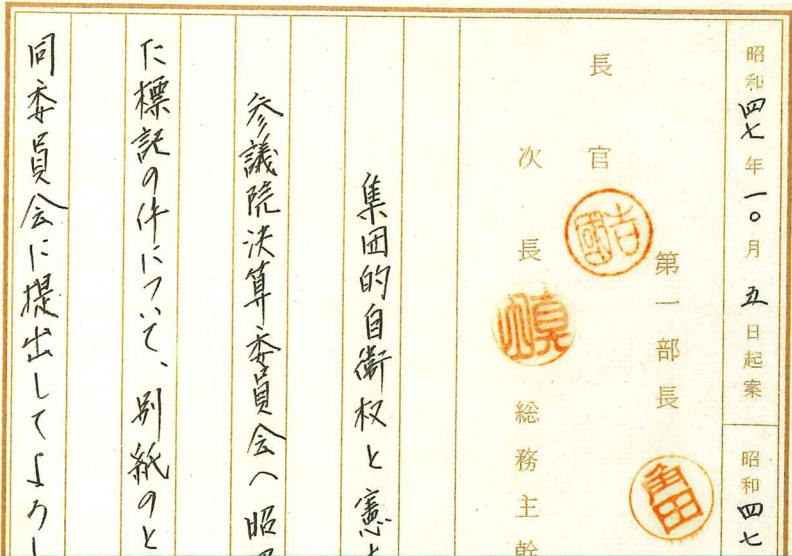 昭和四七年一〇月五日起案
昭和四七
第一部長
角田
長官
吉國
総務主幹
次長
真
集団的自衛权と憲
参議院決算委員会へ昭
た標記の件について、別紙のと
同委員会に提出してよろし